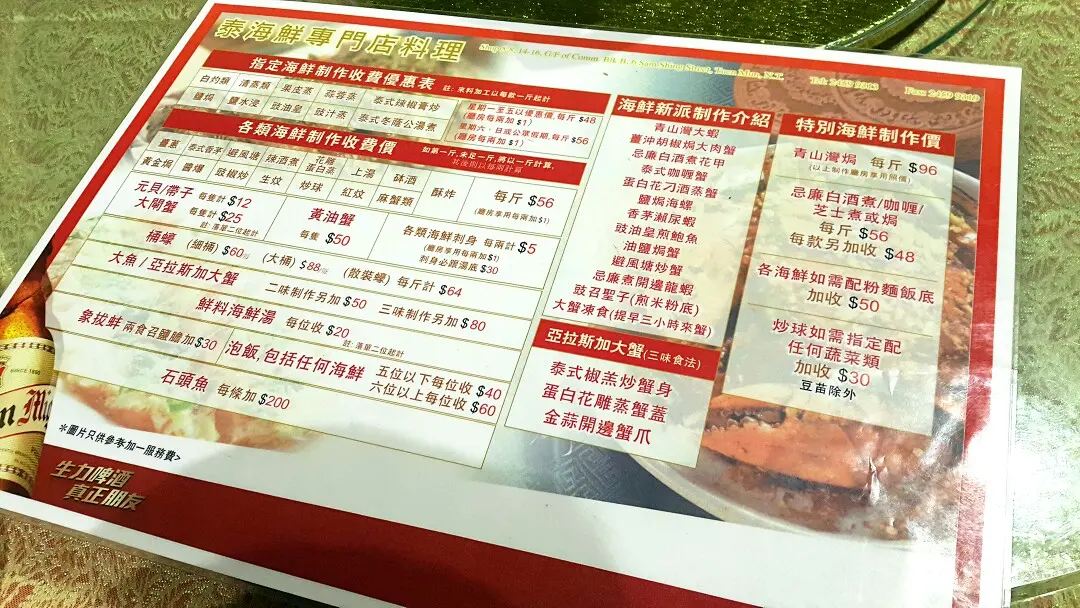 泰海鮮專門店料理
Shop S.S. 14-16, G/F of Comm. Blk B, 6 Sam Shing Street, Tuen Mun, N.T.
Tel: 2489 9313
Fax: 2489 9319
指定海鮮制作收費優惠表 註: 來料加工以每款一斤起計
白灼類 清蒸類 果皮蒸 蒜蓉蒸 泰式辣椒膏炒
鹽焗 鹽水浸 豉油皇 豉汁蒸 泰式冬蔭公湯煮
星期一至五以優惠價,每斤 $48
(廳房每兩加 $1)
星期六、日或公眾假期,每斤 $56
(廳房每兩加 $1)
各類海鮮制作收費價 如第一斤,未足一斤,將以一斤計算,
其後則以每兩計算
薑蔥 泰式香茅 避風塘 辣酒煮 花雕蛋白蒸 上湯 缽酒 酥炸
黃金焗 醬爆 豉椒炒 生炆 炒球 紅炆 麻蟹類
每斤 $56
(廳房享用每兩加$1)
元貝/帶子 每隻計 $12
大閘蟹 每隻計 $25
註: 落單二位起計
黃油蟹
每隻 $50
各類海鮮刺身 每兩計 $5
(廳房享用每兩加$1)
刺身必跟湯底 $30
桶蠔 (細桶) $60 (大桶) $88 (散裝蠔) 每斤計 $64
大魚/亞拉斯加大蟹 二味制作另加 $50 三味制作另加 $80
鮮料海鮮湯 每位收 $20
註: 落單二位起計
象拔蚌 兩食召鹽膽加 $30
泡飯,包括任何海鮮 五位以下每位收 $40
六位以上每位收 $60
石頭魚 每條加 $200
*圖片只供參考加一服務費>
生力啤酒
真正朋友
海鮮新派制作介紹
青山灣大蝦
薑沖胡椒焗大肉蟹
忌廉白酒煮花甲
泰式咖喱蟹
蛋白花刁酒蒸蟹
鹽焗海螺
香茅瀨尿蝦
豉油皇煎鮑魚
油鹽焗蟹
避風塘炒蟹
忌廉煮開邊龍蝦
豉召聖子(煎米粉底)
大蟹凍食(提早三小時來蟹)
亞拉斯加大蟹(三味食法)
泰式椒羔炒蟹身
蛋白花雕蒸蟹蓋
金蒜開邊蟹爪
特別海鮮制作價
青山灣焗 每斤 $96
(以上制作廳房享用照價)
忌廉白酒煮/咖喱/
芝士煮或焗
每斤 $56
每款另加收 $48
各海鮮如需配粉麵飯底
加收 $50
炒球如需指定配
任何蔬菜類
加收 $30
豆苗除外